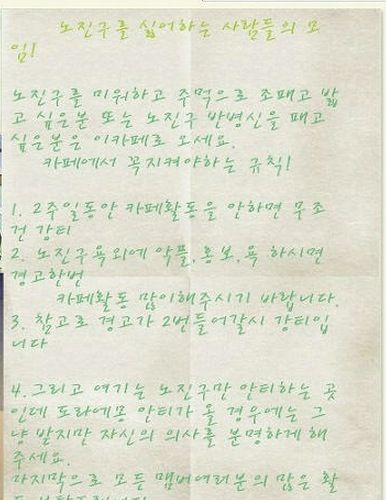 노진구를 싫어하는 사람들의 모
임!
노진구를 미워하고 주먹으로 조패고 밟
고 싶은분 또는 노진구 반병신을 패고
싶은분은 이카페로 오세요.
카페에서 꼭지켜야하는 규칙!
1. 2주일동안 카페활동을 안하면 무조
건 강티
2. 노진구욕외에 악플,홍보,욕 하시면
경고한번
카페활동 많이해주시기 바랍니다.
3. 참고로 경고가 2번들어갈시 강티입
니다
4.그리고 여기는 노진구만 안티하는 곳
인데 도라에몽 안티가 올 경우에는 그
냥 받지만 자신의 의사를 분명하게 해
주세요.
마지막으로 모든 맴버여러분의 많은 활